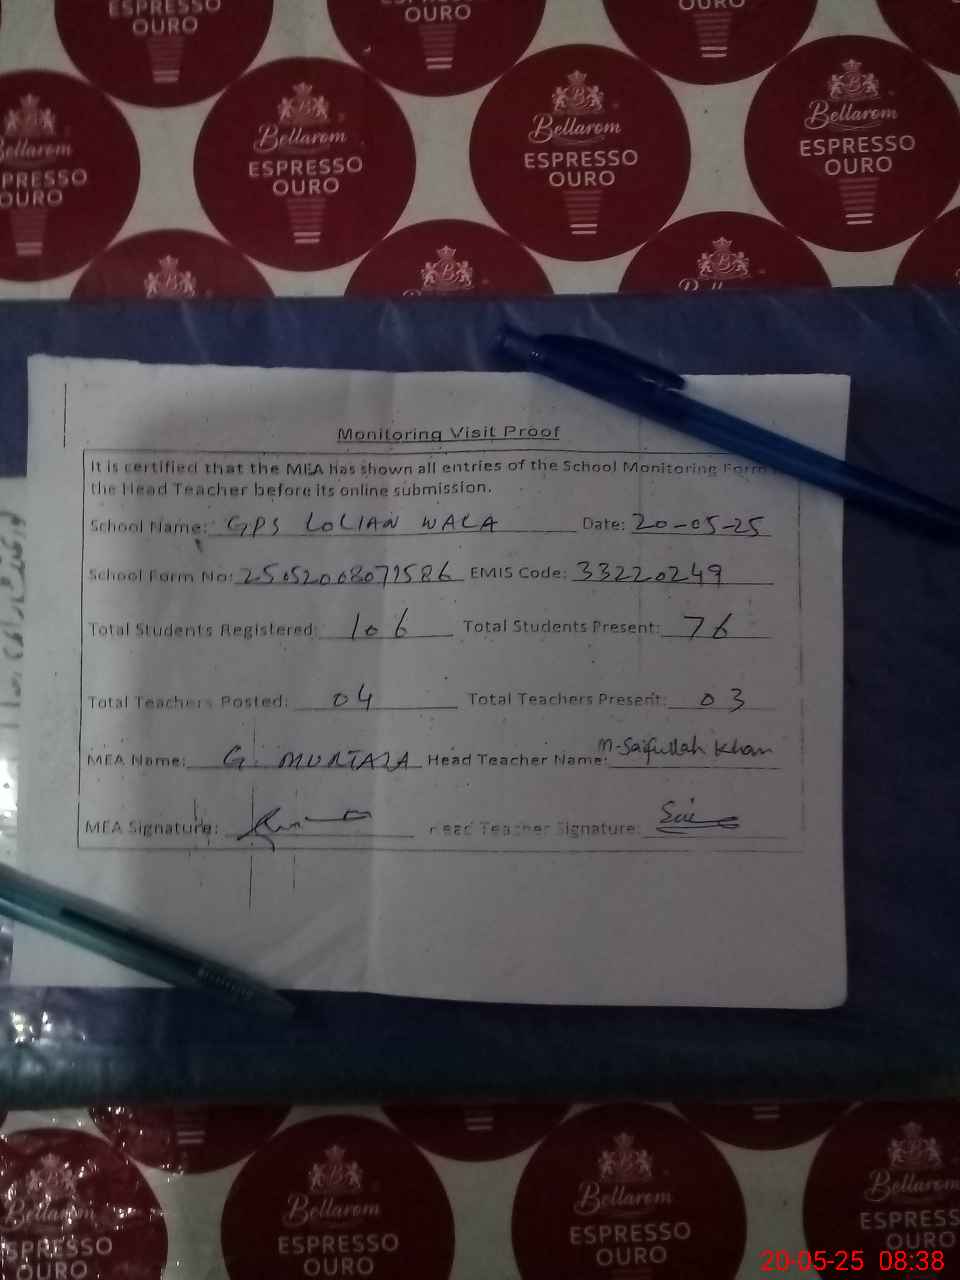 ESPRESSO
OURO
OURO
OURO
Bellarom
ESPRESSO
OURO
Bellarom
ESPRESSO
OURO
Bellarom
ESPRESSO
OURO
Bellarom
ESPRESSO
OURO
Monitoring Visit Proof
It is certified that the MEA has shown all entries of the School Monitoring Form
the Head Teacher before its online submission.
School Name: GPS LOLIAN WALA Date: 20-05-25
School Form No: EMIS Code: 33220249
Total Students Registered: 106 Total Students Present: 76
Total Teachers Posted: 04 Total Teachers Present: 03
MEA Name: G. MURTAZA Head Teacher Name: M-Saifullah Khan
MEA Signature: Head Teacher Signature:
Bellarom
ESPRESSO
OURO
Bellarom
ESPRESSO
OURO
Bellarom
ESPRESSO
OURO
Bellarom
ESPRESSO
OURO
20-05-25 08:38